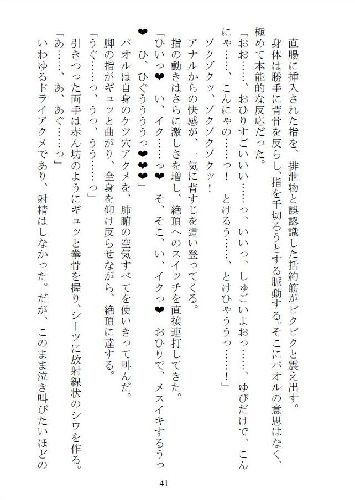 直腸に挿入された指を、排泄物と誤認識した括約筋がビクビクと震え出す。
身体は勝手に背骨を反らし、指を千切ろうとする脈動する。そこにパオルの意思はなく、
極めて本能的な反応だった。
「おお……、おひりすごいいい……っ、いいっ、しゅごいよお……、ゆびだけで、こん
にゃ……、こんにゃの……っ！　とけるう……、とけひゃううっ……！」
ゾクゾクッ、ゾクゾクゾクッ！
アナルからの快感が、一気に背すじを這い登ってくる。
指の動きはさらに激しさを増し、絶頂へのスイッチを直接連打してきた。
「ひいっ❤　い、イク……っ❤　そ、そこ、い、イクっ❤　おひりで、メスイキするうっ
❤　ひ、ひぐうううう❤❤❤❤」
パオルは自身のケツ穴アクメを、肺腑の空気すべてを使いきって叫んだ。
脚の指がギュッと曲がり、全身を仰け反らせながら、絶頂に達する。
「うぐ……っ、うっ、うう……っ」
引きつった両手は赤ん坊のようにギュッと拳骨を握り、シーツに放射線状のシワを作る。
「あ……、あ、あぐ……っ」
いわゆるドライアクメであり、射精はしなかった。だが、このまま泣き叫びたいほどの
41